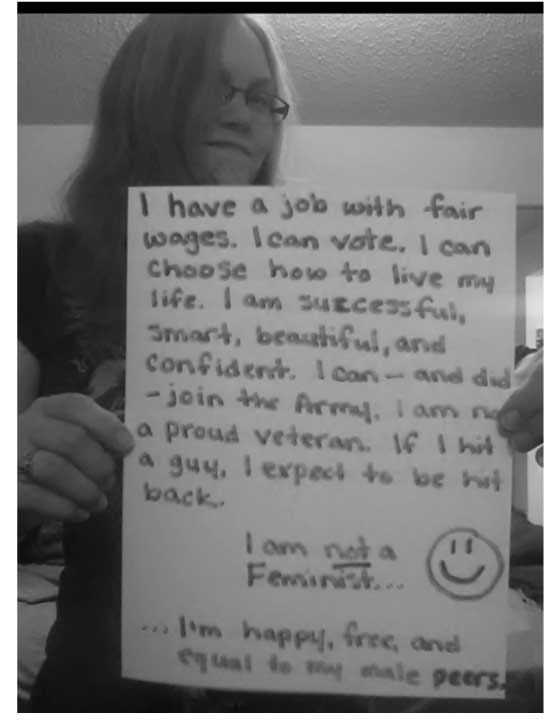 I have a job with fair
wages. I can vote. I can
choose how to live my
life. I am successful,
smart, beautiful, and
confident. I can — and did
- join the Army. I am
a proud veteran. If I hit
a guy, I expect to be hit
back.
I am not a
Feminist...
... I'm happy, free, and
equal to my male peers.